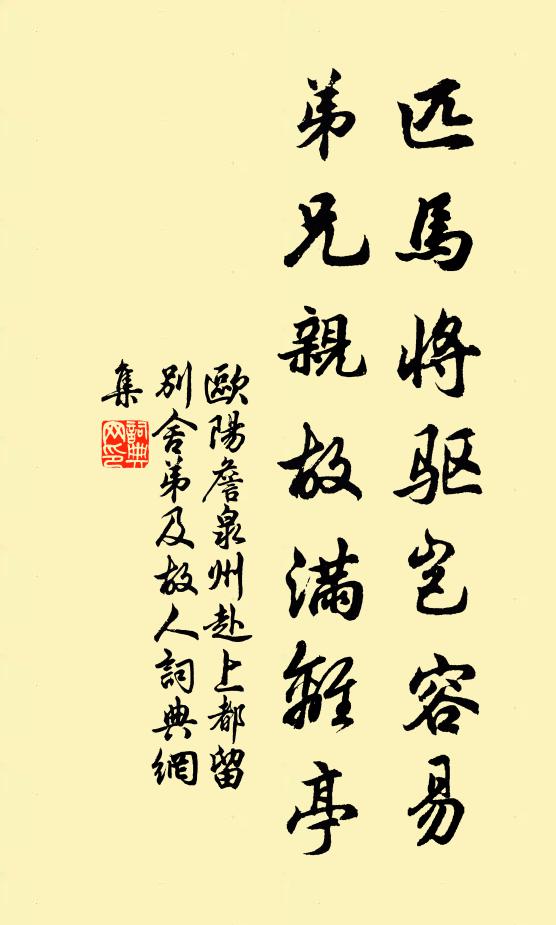 匹馬将驱岂容易
弟兄親故满離亭
歐陽詹泉州赴上都留
别舍弟及故人詞典網
集
詞典
网印